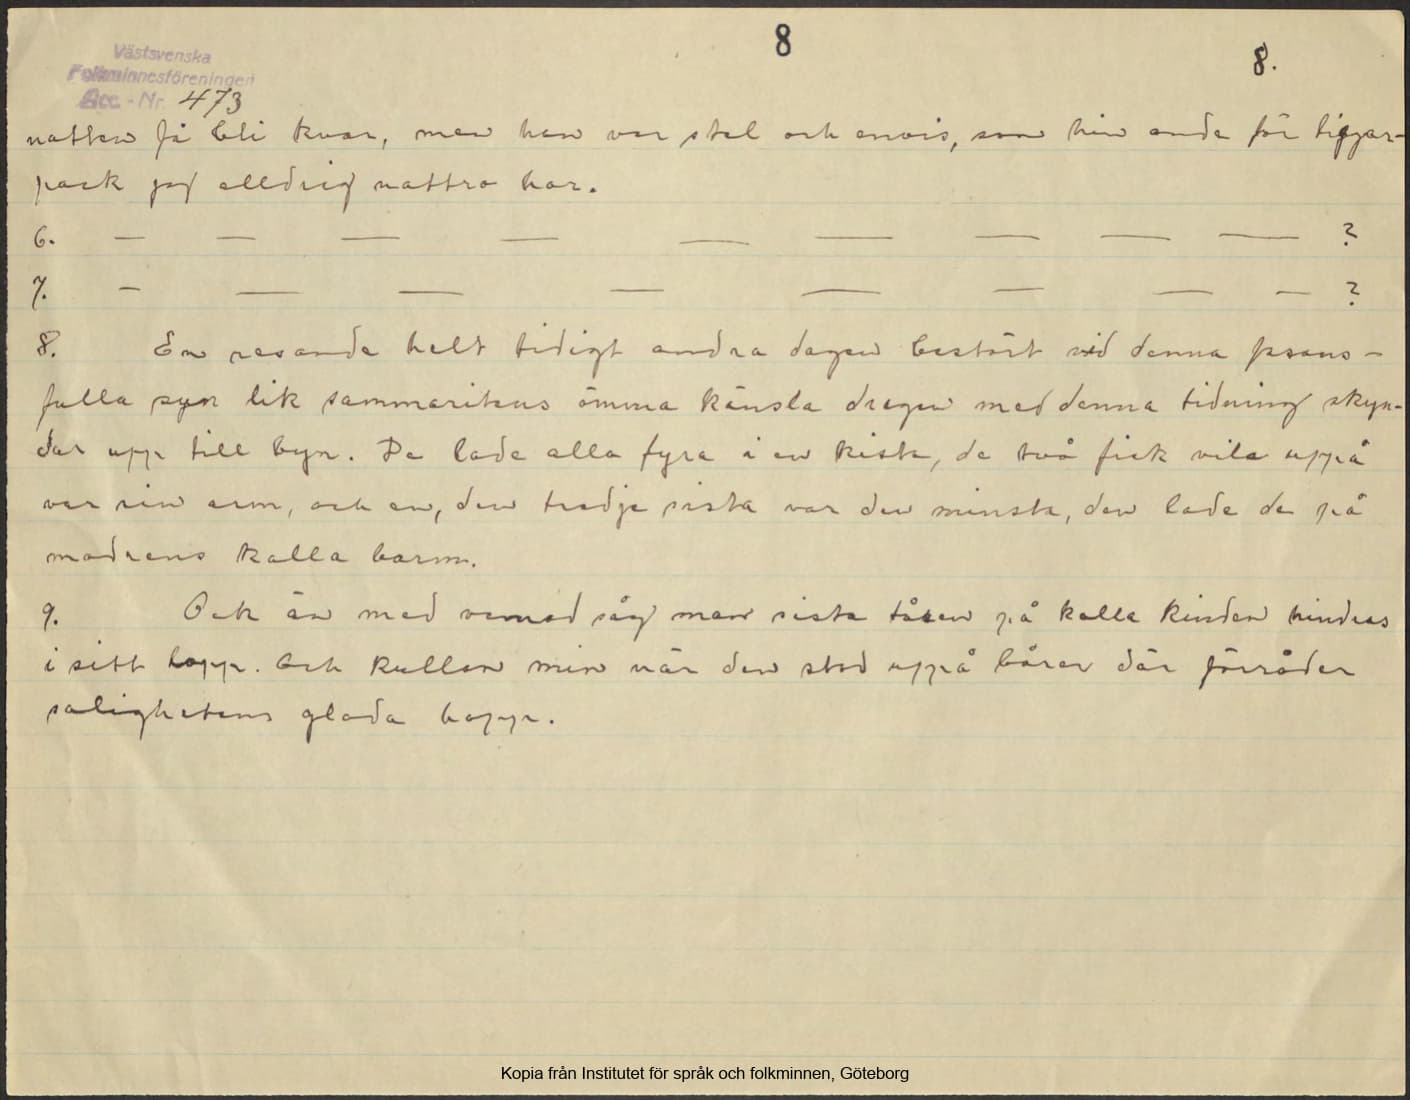 8
8.
Västsvenska
Folkminnesföreningen
Acc. - Nr. 473
natten få bli kvar, men han var stel och envis, som hin onde för tiggar-
pack jag alldrig nattro har.
6. — — — — — — — — — ?
7. — — — — — — — — ?
8. En resande helt tidigt andra dagen bestört vid denna
fulla syn lik sammaritens ömma känsla dragen med denna tidning skyn-
dar upp till byn. De lade alla fyra i en kista, de två fick vila uppå
var sin arm, och en, den tredje sista var den minsta, den lade de på
modrens kalla barm.
9. Och än med vemod såg man sista tåren på kalla kinden hindras
i sitt lopp. Och kullan min när den stod uppå båren där förråder
salighetens glada hopp.
Kopia från Institutet för språk och folkminnen, Göteborg